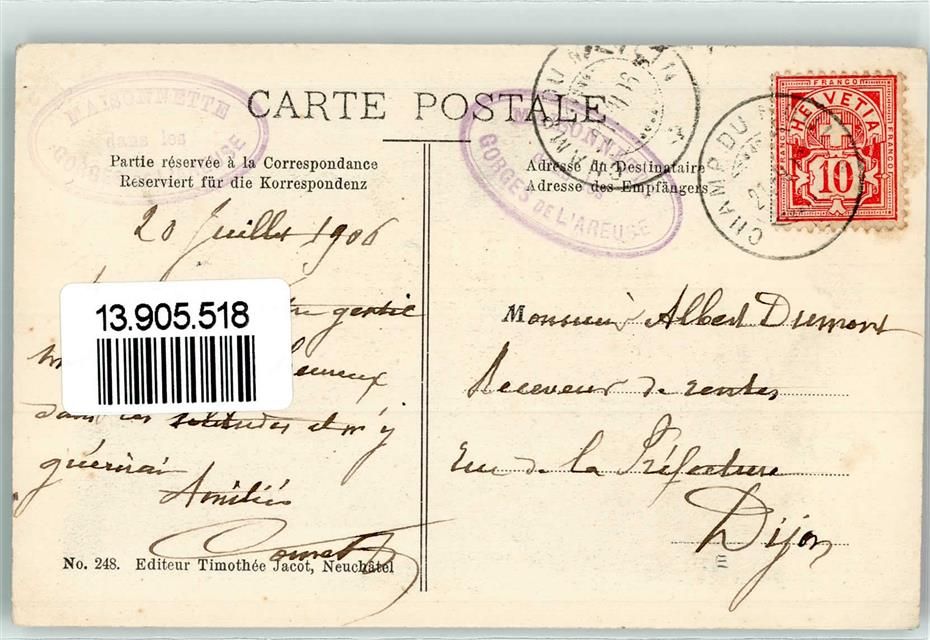 CARTE POSTALE
MAISONNETTE
dans les
GORGES DE L'AREUSE
Partie réservée à la Correspondance
Reserviert für die Korrespondenz
20 Juillet 1906
gentil
13.905.518
heureux
dans ces solitudes et m'y
guérirai
Amitiés
No. 248. Editeur Timothée Jacot, Neuchâtel
GORGES DE L'AREUSE
Adresse du Destinataire
Adresse des Empfängers
CHAMP DU
FRANCO
HELVETIA
FRANCO
FRANCO
10
Monsieur Albert Dumont
Receveur de rentes
Rue de la Préfecture
Dijon